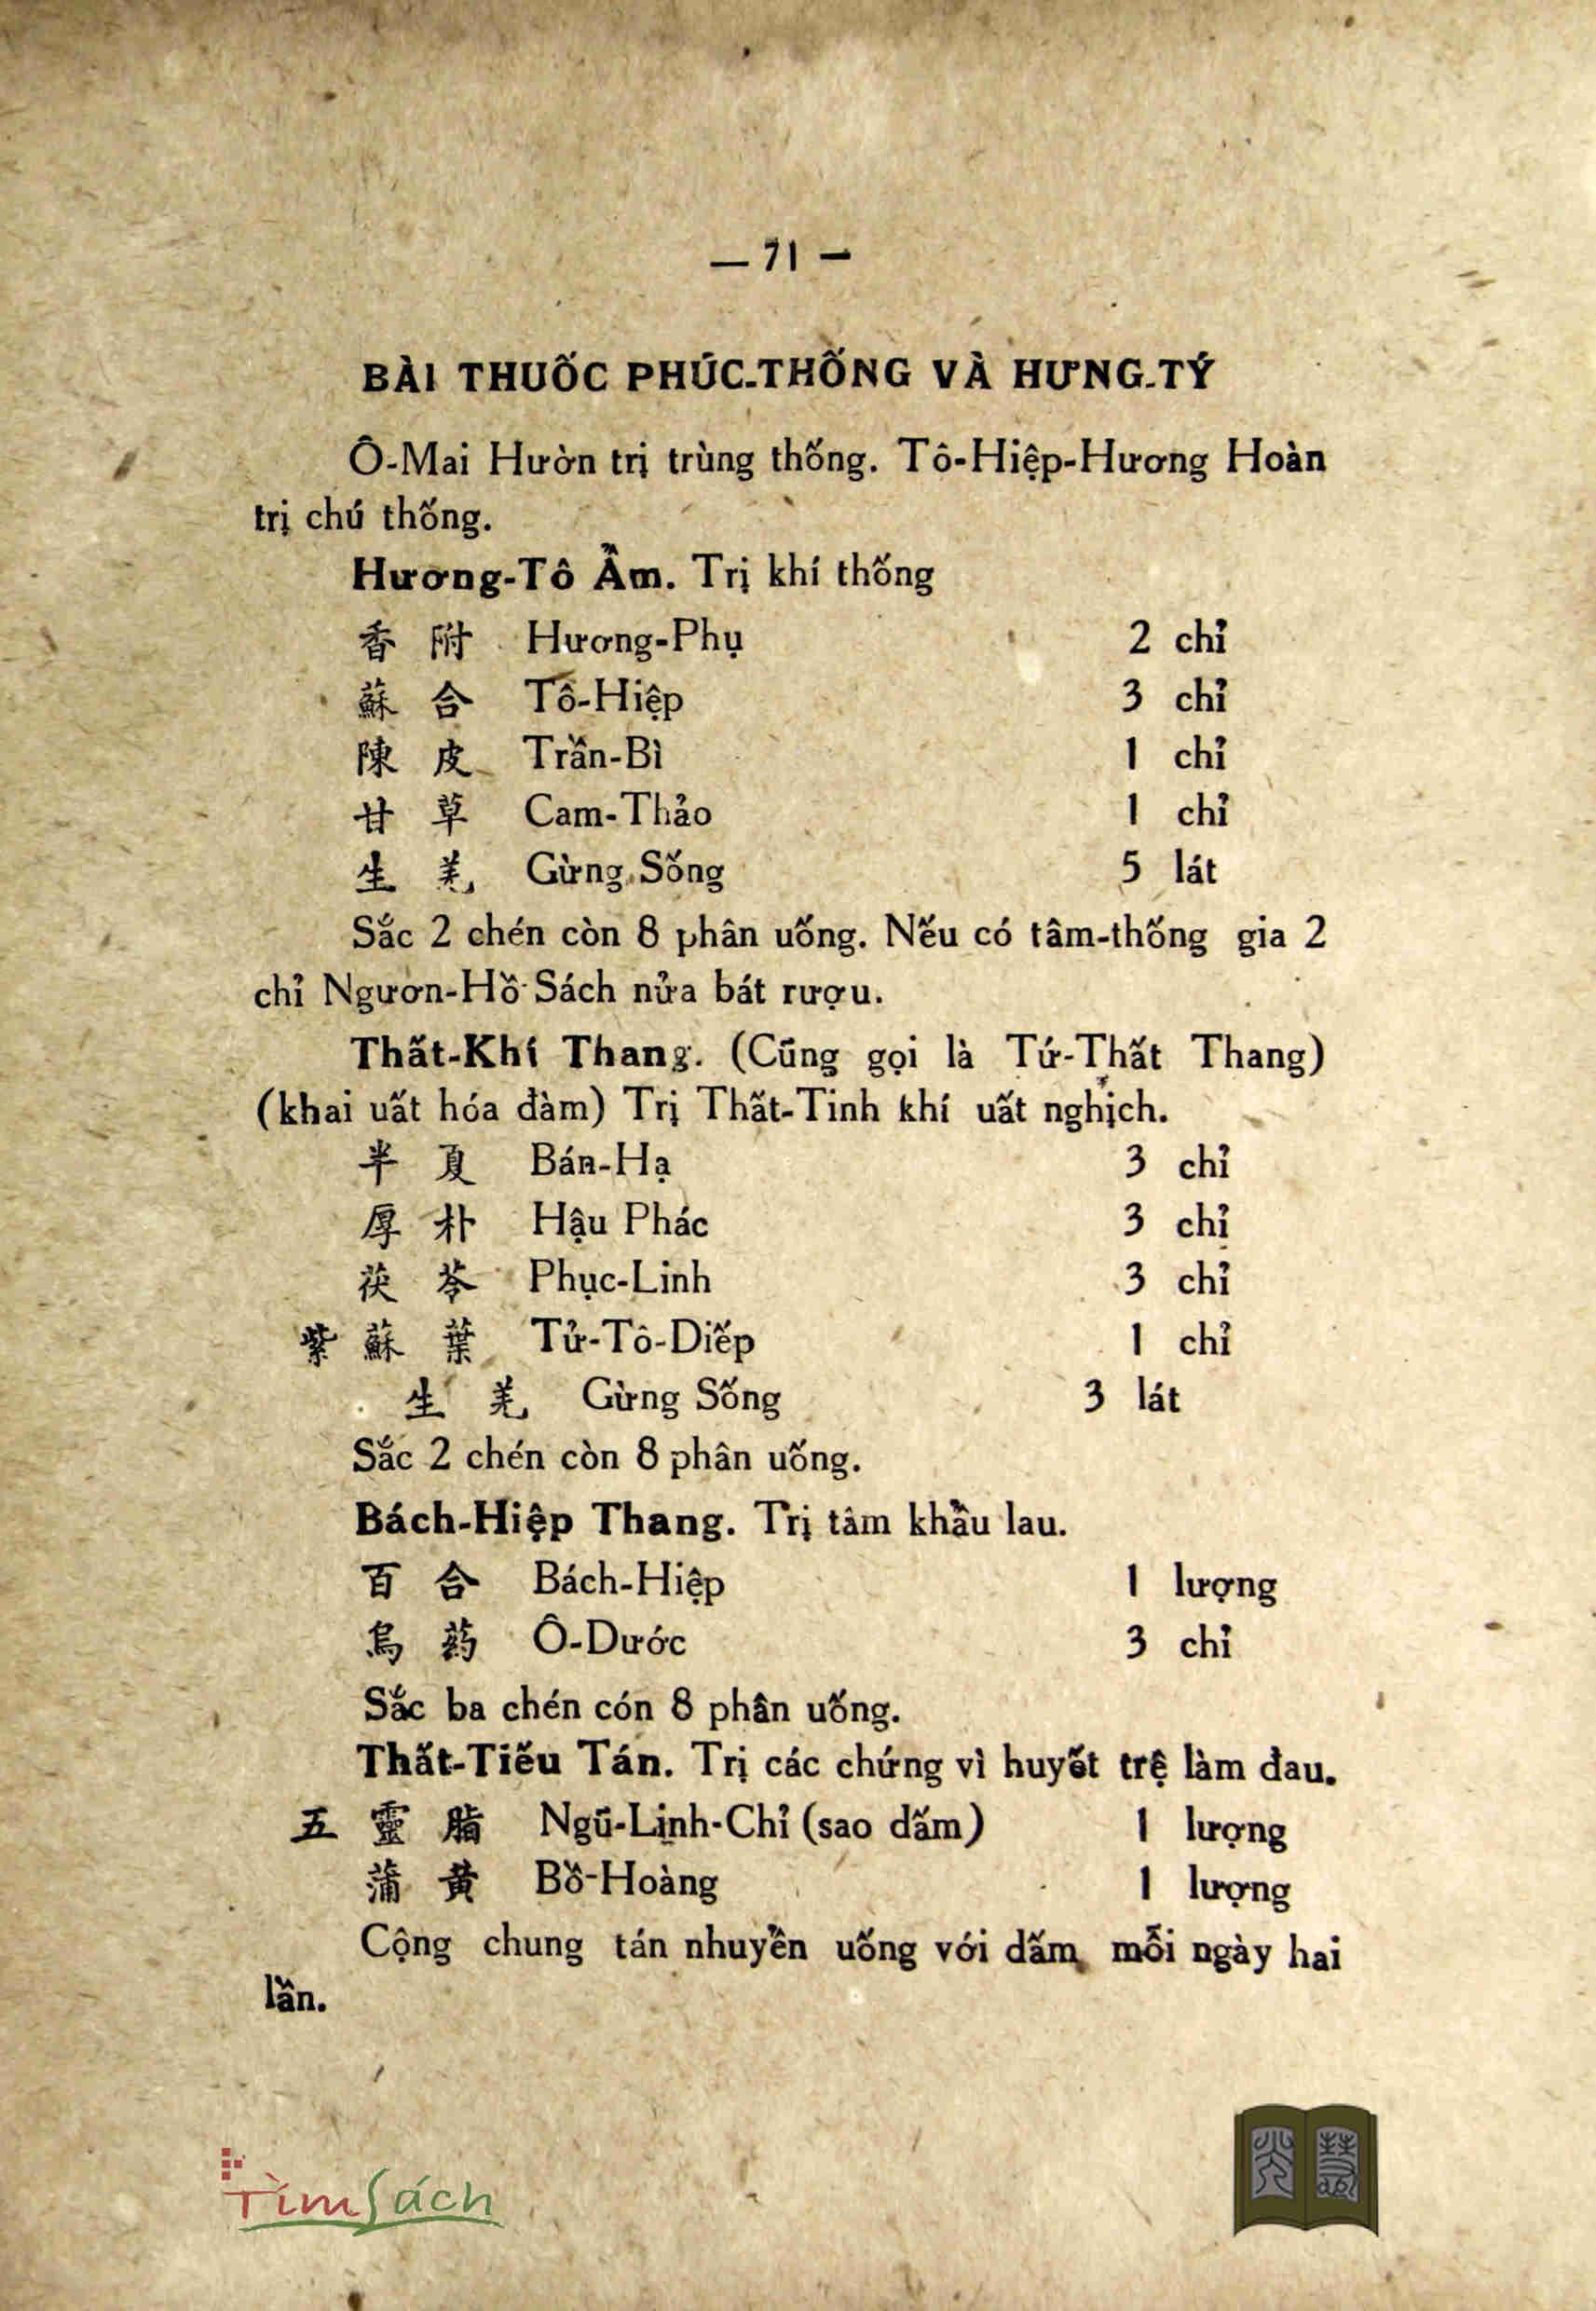 — 71 —
BÀI THUỐC PHÚC-THỐNG VÀ HƯNG-TÝ
Ô-Mai Hườn trị trùng thống. Tô-Hiệp-Hương Hoàn
trị chú thống.
Hương-Tô Ẩm. Trị khí thống
香 附 Hương-Phụ 2 chỉ
蘇 合 Tô-Hiệp 3 chỉ
陳 皮 Trần-Bì 1 chỉ
甘 草 Cam-Thảo 1 chỉ
生 羌 Gừng Sống 5 lát
Sắc 2 chén còn 8 phân uống. Nếu có tâm-thống gia 2
chỉ Ngươn-Hồ Sách nửa bát rượu.
Thất-Khí Thang. (Cũng gọi là Tứ-Thất Thang)
(khai uất hóa đàm) Trị Thất-Tinh khí uất nghịch.
半 夏 Bán-Hạ 3 chỉ
厚 朴 Hậu Phác 3 chỉ
茯 苓 Phục-Linh 3 chỉ
紫 蘇 葉 Tử-Tô-Diếp 1 chỉ
生 羌 Gừng Sống 3 lát
Sắc 2 chén còn 8 phân uống.
Bách-Hiệp Thang. Trị tâm khẩu lau.
百 合 Bách-Hiệp 1 lượng
烏 药 Ô-Dước 3 chỉ
Sắc ba chén cón 8 phân uống.
Thất-Tiếu Tán. Trị các chứng vì huyết trệ làm đau.
五 靈 脂 Ngũ-Linh-Chỉ (sao dấm) 1 lượng
蒲 黄 Bồ-Hoàng 1 lượng
Cộng chung tán nhuyển uống với dấm mỗi ngày hai
lần.
TìmSách